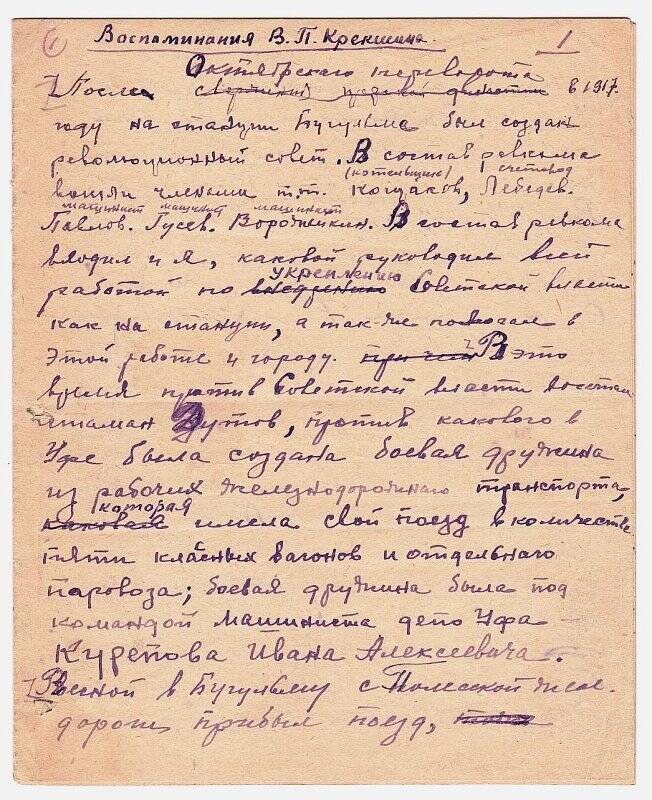 1 Воспоминания В. П. Крекшина. 1
Октябрьского переворота
После свержения царской династии в 1917
году на станции Бугульма был создан
революционный совет. В состав ревкома
(котельщик) счетовод
вошли членами т.т. Кощаков, Лебедев.
машинист машинист машинист
Павлов. Гусев. Воротников. В состав ревкома
входил и я, каковой руководил всей
укреплению
работой по внедрению Советской власти
как на станции, а так-же помогал в
этой работе и городу. причем В это
время против Советской власти восстал
атаман Дутов, против какового в
Уфе была создана боевая дружина
из рабочих железнодорожного транспорта,
которая
каковая имела свой поезд в количестве
пяти классных вагонов и отдельного
паровоза; боевая дружина была под
командой машиниста депо Уфа –
Курепова Ивана Алексеевича.
Весной в Бугульму с Полесской жел.
дороги прибыл поезд,